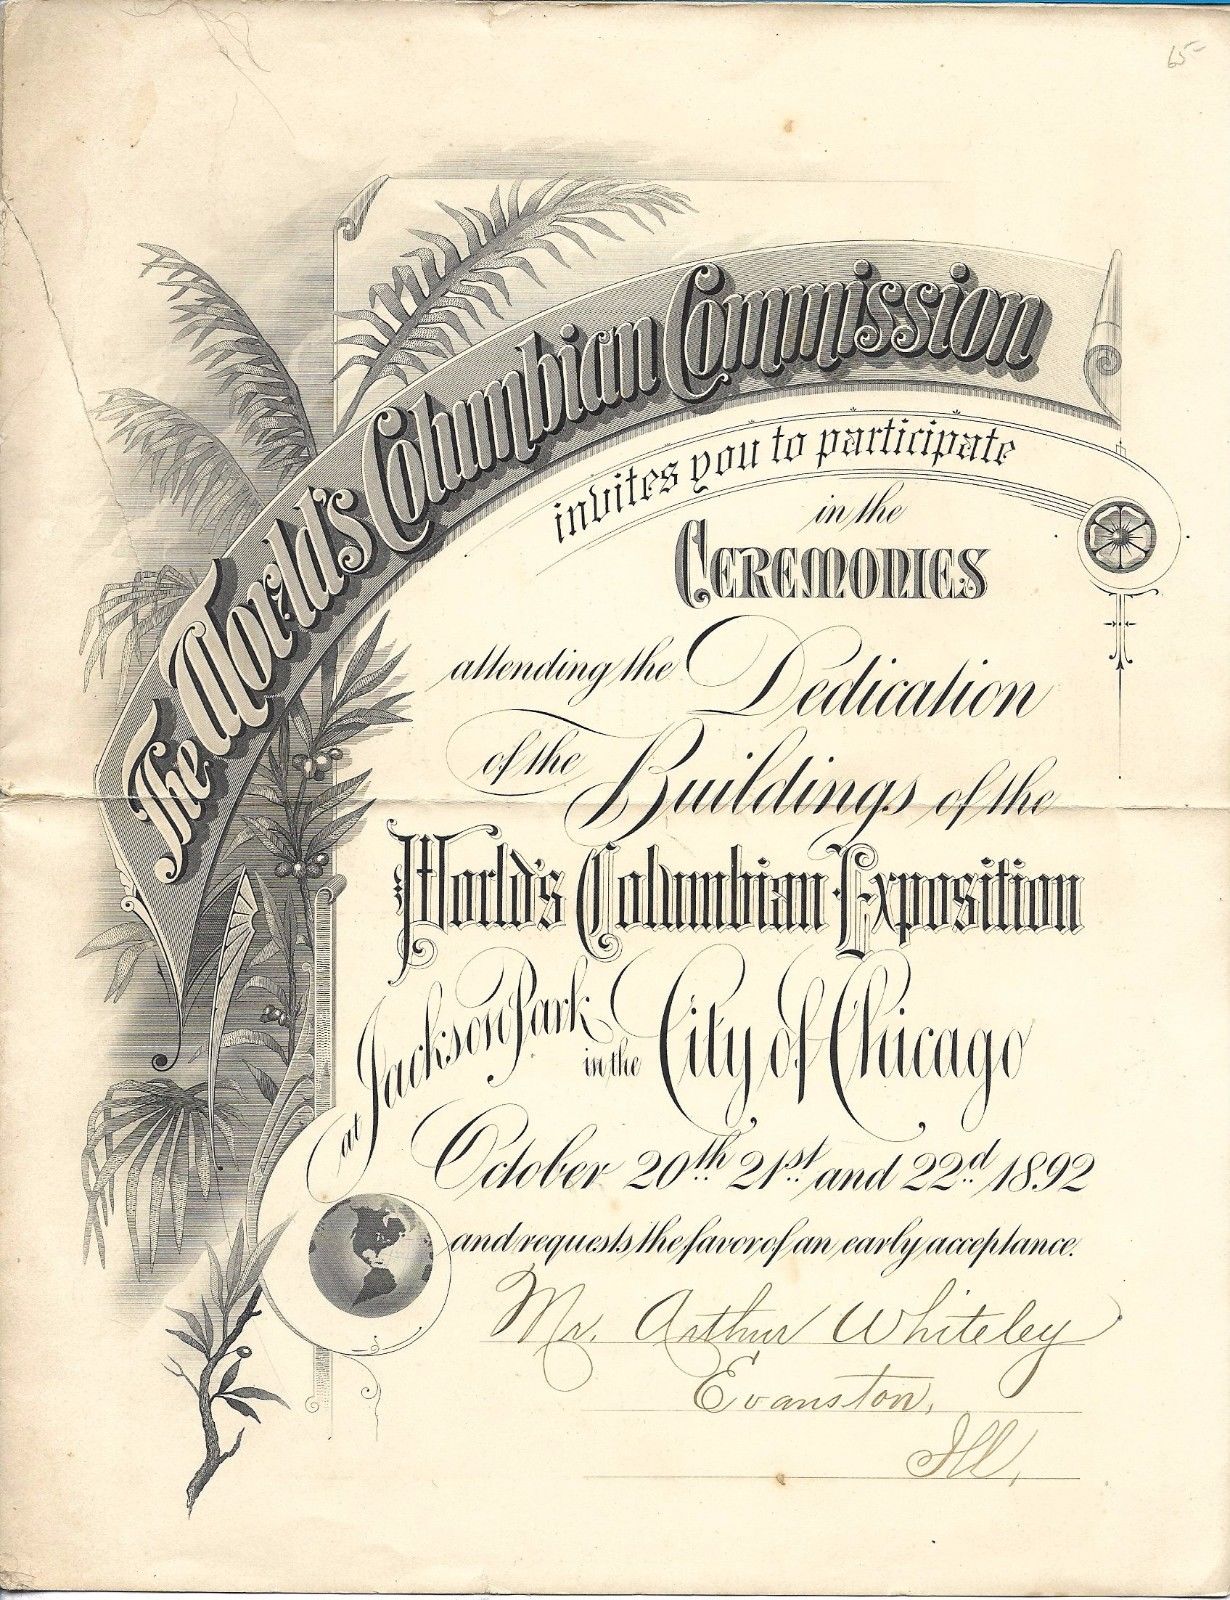 65-
The World's Columbian Commission
invites you to participate
in the
CEREMONIES
attending the Dedication
of the Buildings of the
World's Columbian Exposition
at Jackson Park in the City of Chicago
October 20th 21st and 22d 1892
and requests the favor of an early acceptance.
Mr. Arthur Whiteley
Evanston,
Ill,